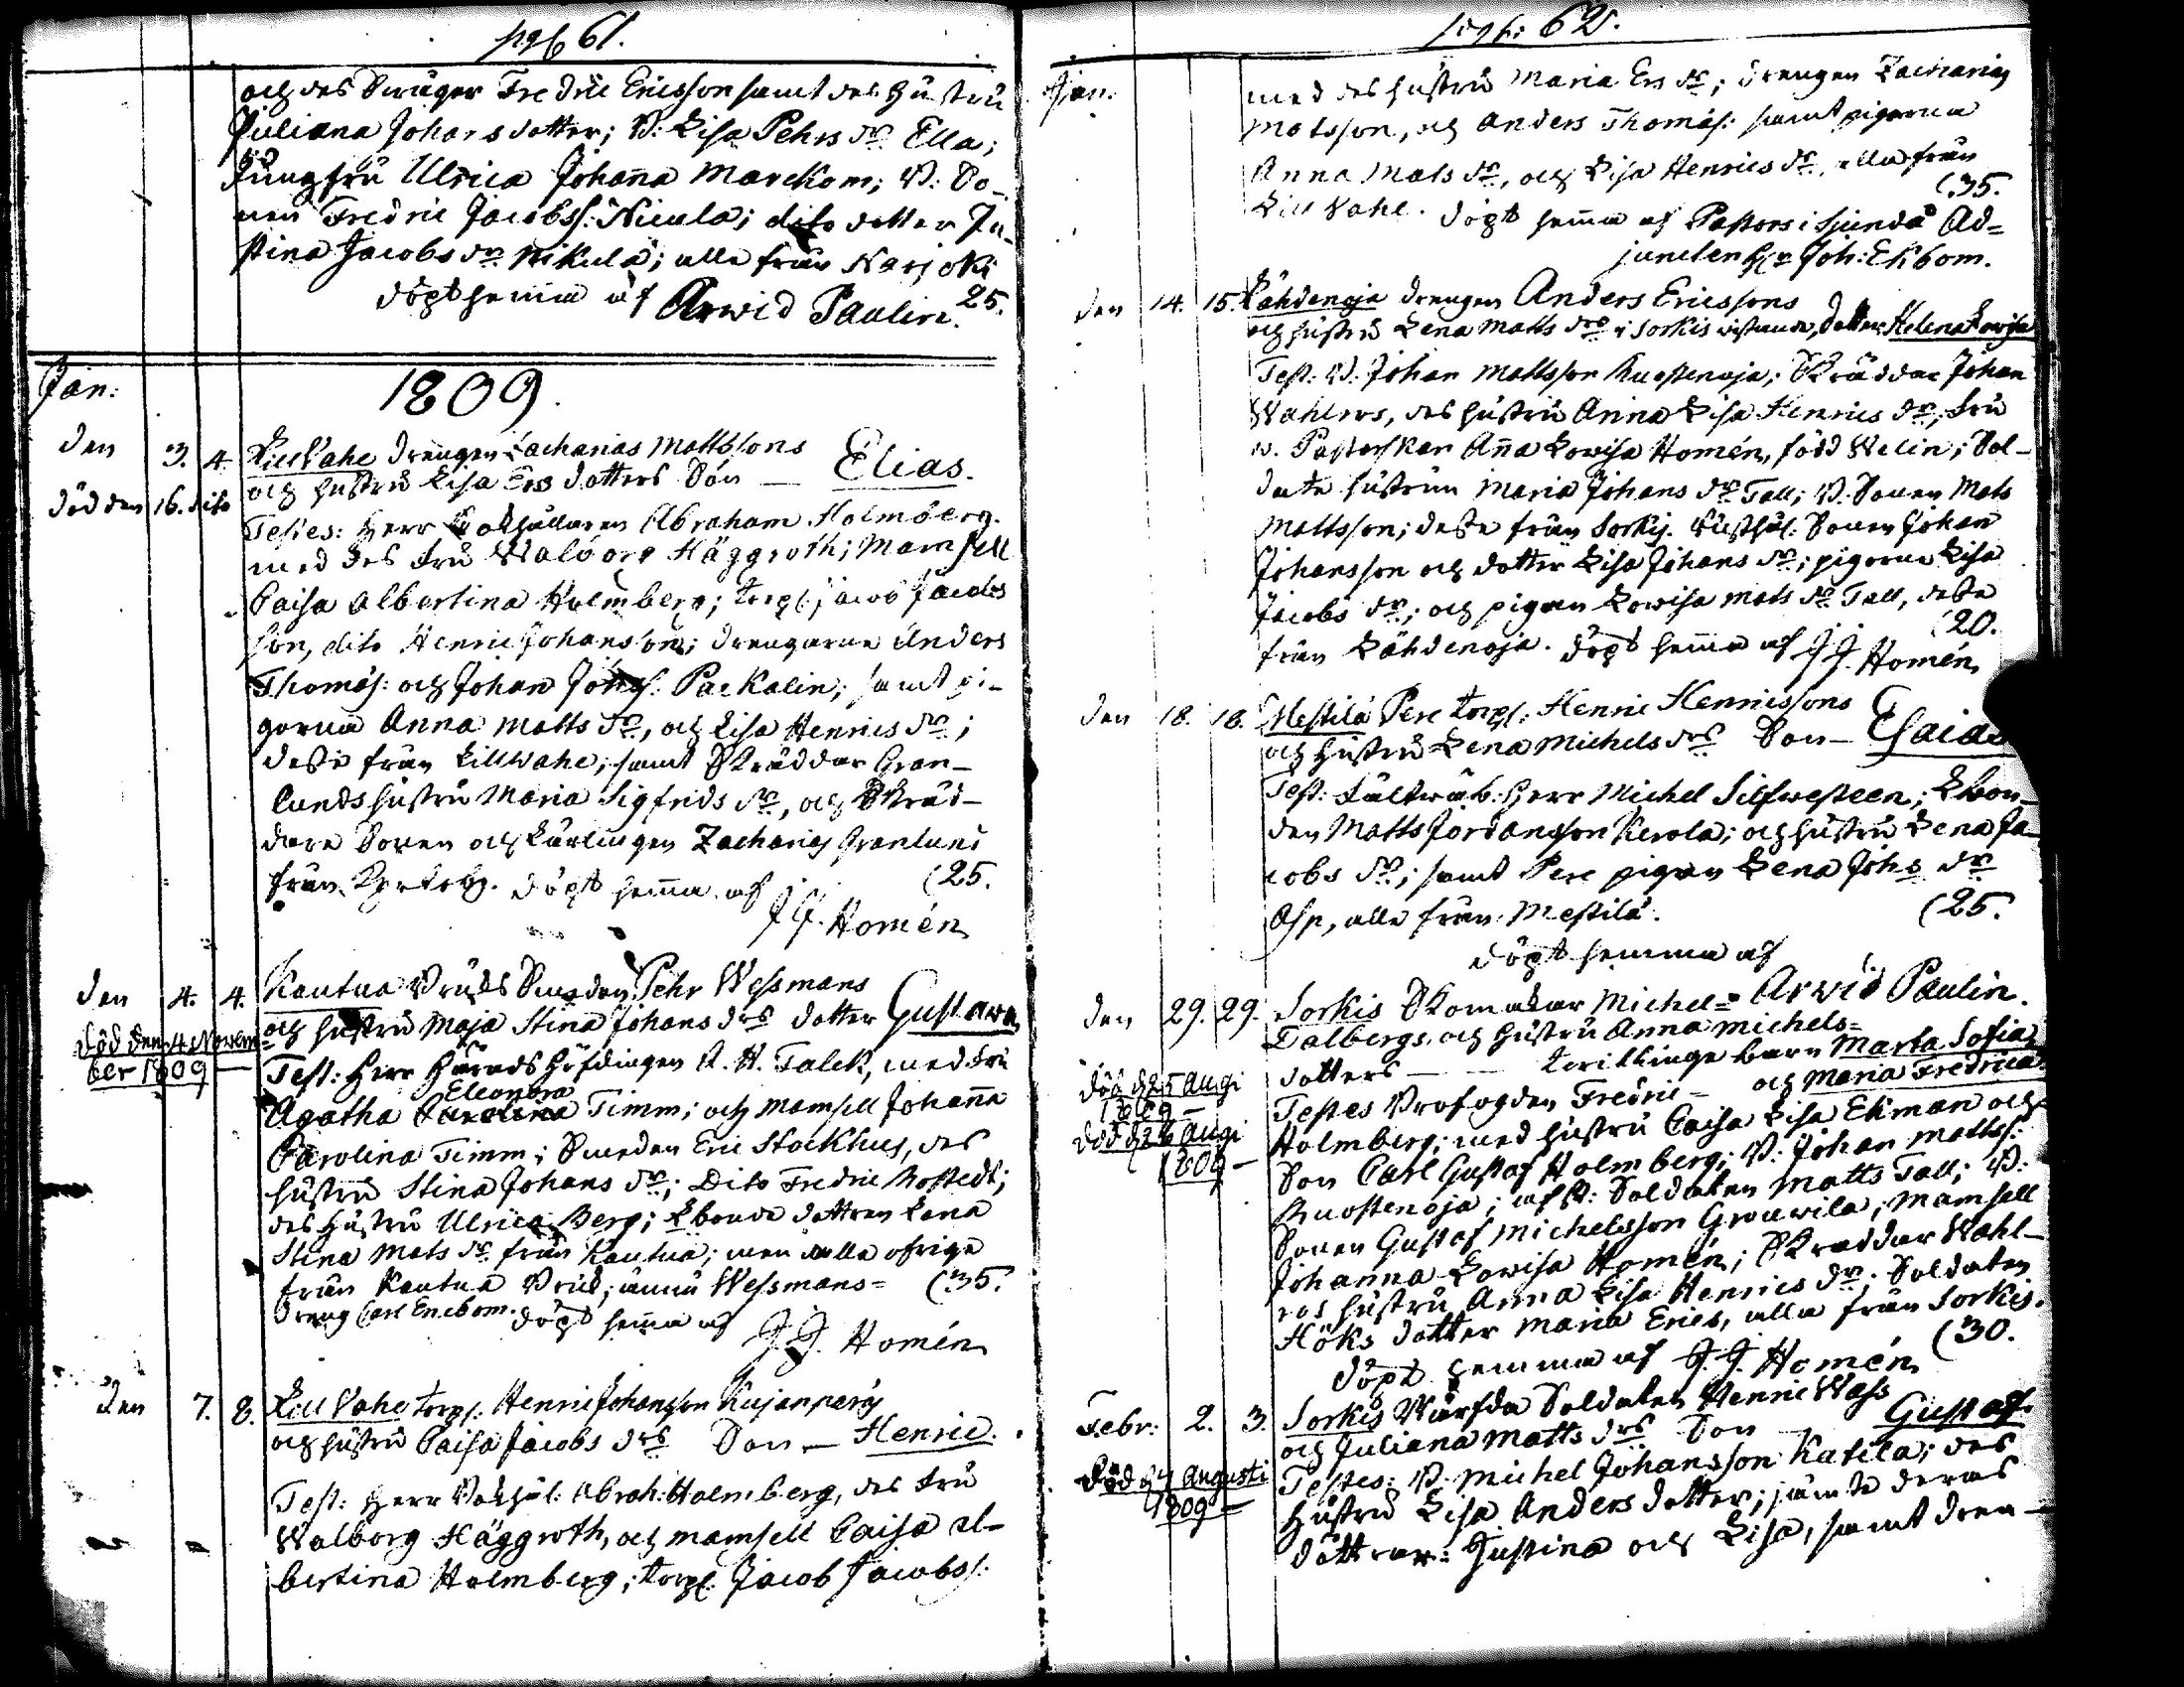 pag 61.
och des Swäger Fredric Ericsson samt des hustru
Juliana Johans dotter; B: Lisa Pehrs dr Ella;
Jungfru Ulrica Johanna Marckom; B: So-
nen Fredric Jacobss: Nicula; dito dotter Ju-
stina Jacobs dr Nikula; alla från Narjoki
döpt hemma af Arwid Paulin. 25.
1809.
Jan:
den 3. 4. LillWahe drengen Zacharias Mattssons
död den 16. dito och hustru Lisa Ers dotters Son — Elias.
Testes: Herr Bokhållaren Abraham Holmberg
med des Fru Walborg Häggroth; Mamsell
Caisa Albertina Holmberg; torp: Jacob Jacobs
son, dito Henric Johansson; drengarne Anders
Thomas: och Johan Johss: Packalin; samt pi-
gorna Anna Matts dr, och Lisa Henrics dr;
desse från Lillwahe; samt Skräddar Gran-
lunds hustru Maria Sigfrids dr, och Skräd-
dare Sonen och Lärlingen Zacharias Granlund
från döpt hemma af (25.
J J. Homén
den 4. 4. Kautua Bruks Smeden Pehr Wessmans
död den 4 Novem- och hustru Maja Stina Johans drs dotter Gustava
ber 1809 — Test: Herr Häradshöfdingen A. H. Falck, med Fru
Eleonora
Agatha Carolina Timm; och Mamsell Johanna
Carolina Timm; Smeden Eric Stockhus, des
hustru Stina Johans dr; Dito Fredric Bostedt;
des hustru Ulrica Berg; Lbonde dottren Lena
Stina Mats dr från Kautua; men alla öfrige
från Kautua Bruk; ännu Wessmans= (35.
dreng Carl Enebom. döpt hemma af
J. J. Homén
den 7. 8. LillVahe torp: Henric Johansson Kujanpery
och hustru Caisa Jacobs drs Son — Henric.
Test: Herr Bokhål: Abrah: Holmberg, des Fru
Walborg Häggroth, och Mamsell Caisa Al-
bertina Holmberg; torp: Jacob Jacobss:
pag: 62.
Jan: med des hustru Maria Ers dr; drengen Zacharias
Matsson, och Anders Thomas: samt pigorna
Anna Mats dr, och Lisa Henrics dr, alla från
LillVahe. (35.
döpt hemma af Pastors i Sjundå Ad=
juncten Hr Joh: Ekbom.
den 14. 15. Lähdenoja drengen Anders Ericssons
och hustru Lena Matts drs i Sorkis wistande, dotter Helena Lowisa
Test: B: Johan Mattsson Knostenoja; Skräddar Johan
Wahlros, des hustru Anna Lisa Henrics dr; Fru
v. Pastorskan Anna Lowisa Homén, född Welin; Sol-
date hustrun Maria Johans dr Tall; B: Sonen Mats
Mattsson; desse från Sorkis. Rusthål: Sonen Johan
Johansson och dotter Lisa Johans dr; pigorna Lisa
Jacobs dr; och pigan Lowisa Mats dr Tall, desse
från Lähdenoja. döpt hemma af J J. Homén (20.
den 18. 18. Mestilä Pere torp: Henric Henricssons
och hustru Lena Michels drs Son — Esaias
Test: Fältwäb: Herr Michel Silfwesteen; Lbon-
den Matts Jordansson Kerola; och hustru Lena Ja-
cobs dr; samt Pere pigan Lena Johs dr
Asp, alla från Mestilä. (25.
döpt hemma af
Arvid Paulin.
den 29. 29. Sorkis Skomakar Michel=
Dalbergs, och hustru Anna Michels=
död d 25 Augi 1809 — dotters — twillinge barn Marta Sofia
och Maria Fredrica
död d 26 Augi 1809 — Testes Brofogden Fredric
Holmberg; med hustru Caisa Lisa Ekman och
Son Carl Gustaf Holmberg; B: Johan Mattss:
Knostenoja; af: Soldaten Matts Tall; B:
Sonen Gustaf Michelsson Grouwila; Mamsell
Johanna Lowisa Homén; Skräddar Wahl-
ros hustru Anna Lisa Henrics dr; Soldaten
Höks dotter Maria Erics, alla från Sorkis.
döpt hemma af J. J. Homén (30.
Febr: 2. 3. Sorkis Wärfda Soldaten Henric Wass
och Juliana Matts drs Son — Gustaf.
död d 4 Augusti 1809 — Testes: B: Michel Johansson Katila; des
hustru Lisa Anders dotter; jämte deras
döttrar: Justina och Lisa, samt dren-